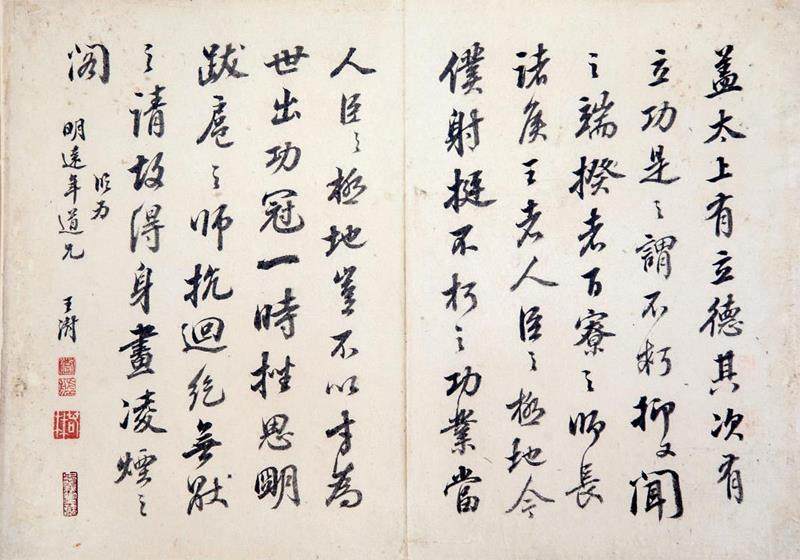 盖太上有立德其次有
立功是之謂不朽抑又聞
之端揆者百寮之師長
諸侯王者人臣之極地今
僕射挺不朽之功業當
人臣之極地豈不以才為
世出功冠一時挫思明
跋扈之師抗迴紇無猒
之請故得身畫凌煙之
閣
臨為
明遠年道兄 王澍